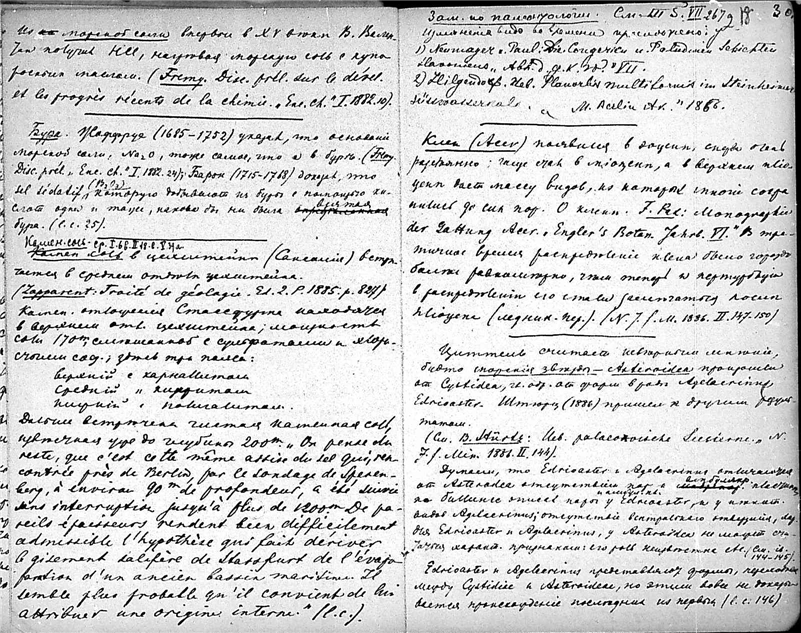 из морской соли впервые в XV в. Вален-
тин получил HCl, нагревая морскую соль с купо-
росным маслом. (Fremy. Disc. prél. sur le dével.
et les progrès récents de la chimie. „Enc. ch." I. 1882. 10).
Бура. Жоффруа (1685–1752) указал, что основание
морской соли, Na2O, тоже самое, что и в буре. (Fremy.
Disc. prél., Enc. ch. I. 1882. 24); Барон (1715–1768) доказал, что
sel sédatif, которую добывают из буры с помощью ки-
слот одна и та же, какова бы ни была взятая
бура. (l. c. 25).
Камен. соль
Камен. соль в цехштейне (Саксония) встре-
чается в среднем отделе цехштейна.
(Lapparent. Traité de géologie. Ed. 2. P. 1885. p. 824)
Камен. отложения Стассфурта находятся
в верхнем отд. цехштейна; мощность
соли 170m с сульфатами и хлори-
стыми сод.; здесь три пояса:
верхний с карналлитом
средний „ кизеритом
нижний „ полигалитом.
Дальше встречена чистая каменная соль,
изученная уже до глубины 200m. „On pense du
reste, que c'est cette même assise du sel qui, ren-
contrée près de Berlin, par le sondage de Speren-
berg, à environ 90m de profondeur, a été suivie
sans interruption jusqu'à plus de 1200m. De pa-
reils épaisseurs rendent bien difficilement
admissible l'hypothèse qui fait dériver
le gisement salifère de Stassfurt de l'évapo-
ration d'un ancien bassin maritime. Il
semble plus probable qu'il convient de lui
attribuer une origine interne." (l. c.).
Зам. по палеонтологии. См. III S. VII 267 g 18 30
Изменения видов во времени прослежено:
1) Neumayr и Paul. Die Congerien и Paludinen Schichten
Slavoniens „Abh. d. g. R. VII.
2) Hilgendorf. Ueb. Planorbis multiformis im Steinheimer
Süsswasserkalk. „M. Berlin Ak." 1866.
Клен (Acer) появился в эоцен, сперва очень
раздельно: чаще стал в миоцен, а в верхнем плио-
цене дает массу видов, из которых много сохра-
нились до сих пор. О клене. F. Pax: Monographie
der Gattung Acer. „Engler's Botan. Jahrb. VI." В тре-
тичное время распределение клена было гораздо
более равномерно, чем теперь и пертурбации
в распределении его стали заметны после
плиоцена (ледник. пер.). (N. J. f. M. 1886. II. 147–150)
Циттель считает неверным мнение,
будто морские звезды – Asteroidea произошли
от Cystidea, т. обр. от форм вроде Agelacrinus,
Edrioaster. Штюрц (1886) пришел к другим резуль-
татам.
(См. B. Stürtz: Ueb. palaeozoische Seesterne. „N.
J. f. Min. 1886. II. 144).
Думают, что Edrioaster и Agelacrinus отличаются
от Asteroidea отсутствием пор
Edrioaster,
отсутствие вентрального отверстия,
Edrioaster и Agelacrinus, у Asteroidea не может
(См. ib.
144–145)
Edrioaster и Agelacrinus представляют формы, переходные
между Cystidea и Asteroidea, но этим вовсе не доказы-
вается происхождение последних из первых (l. c. 146)